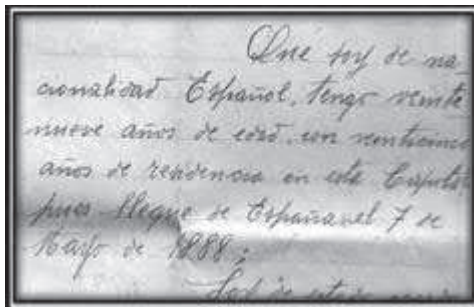 Qué soy de na-
cionalidad Español, tengo veinte
nueve años de edad, con venticinco
años de residencia en esta Capital
pues llegue de España el 7 de
Mayo de 1888;
de estado